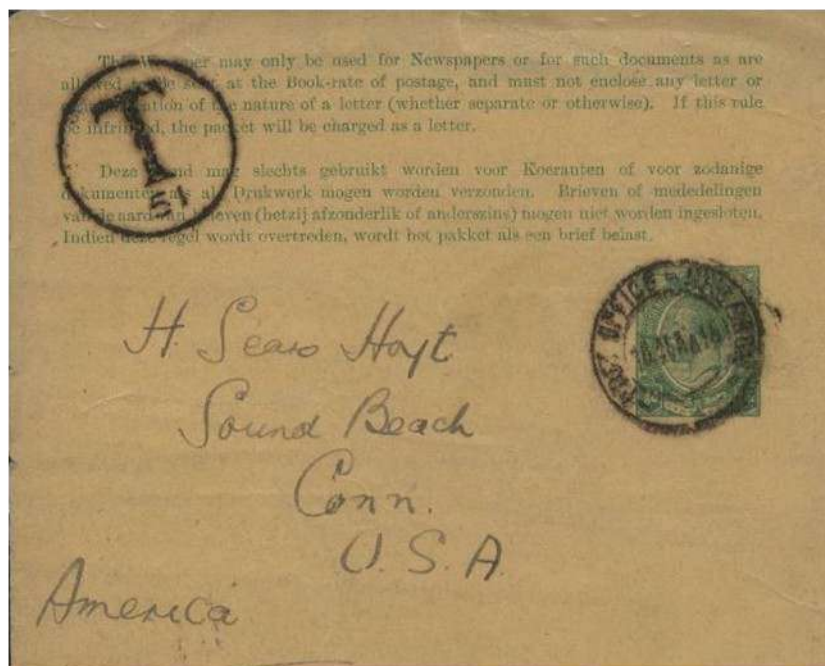 This Wrapper may only be used for Newspapers or for such documents as are
allowed to be sent at the Book-rate of postage, and must not enclose any letter or
communication of the nature of a letter (whether separate or otherwise). If this rule
be infringed, the packet will be charged as a letter.
Deze Band mag slechts gebruikt worden voor Koeranten of voor zodanige
dokumenten als als Drukwerk mogen worden verzonden. Brieven of mededelingen
van de aard van brieven (hetzij afzonderlik of anderszins) mogen niet worden ingesloten.
Indien deze regel wordt overtreden, wordt het pakket als een brief belast.
T
H. Sears Hoyt
Sound Beach
Conn.
U.S.A.
America
OFFICE